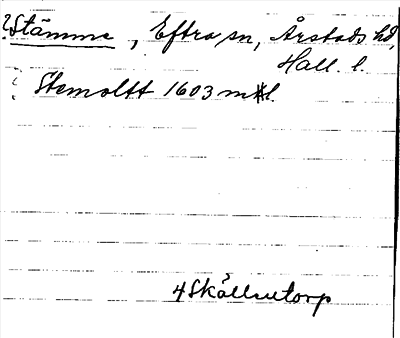 ?Stämme, Eftra sn, Årstads hd,
Hall. l.
Stemoltt 1603 mtl.
4 Skällentorp